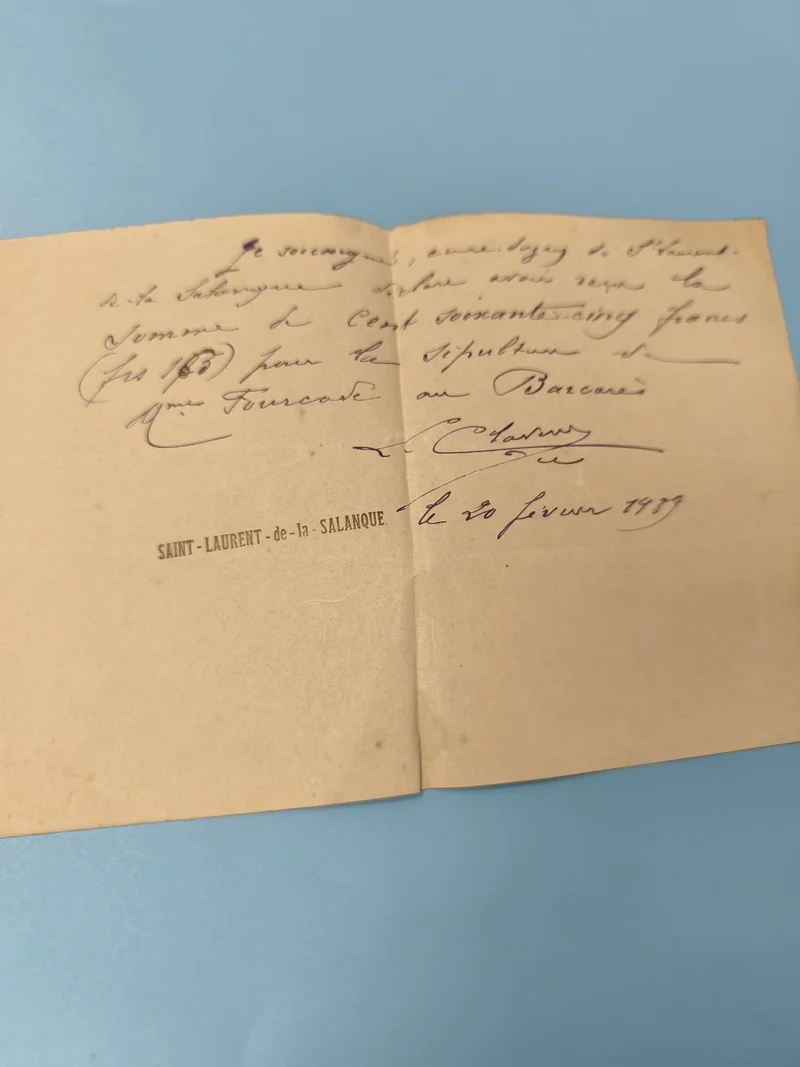 Je soussigné, curé-doyen de St Laurent-
de-la Salanque déclare avoir reçu la
somme de Cent soixante-cinq francs
(frs 165) pour la sépulture de
Mme Fourcade au Barcarès
le 20 février 1919
SAINT-LAURENT-de-la-SALANQUE